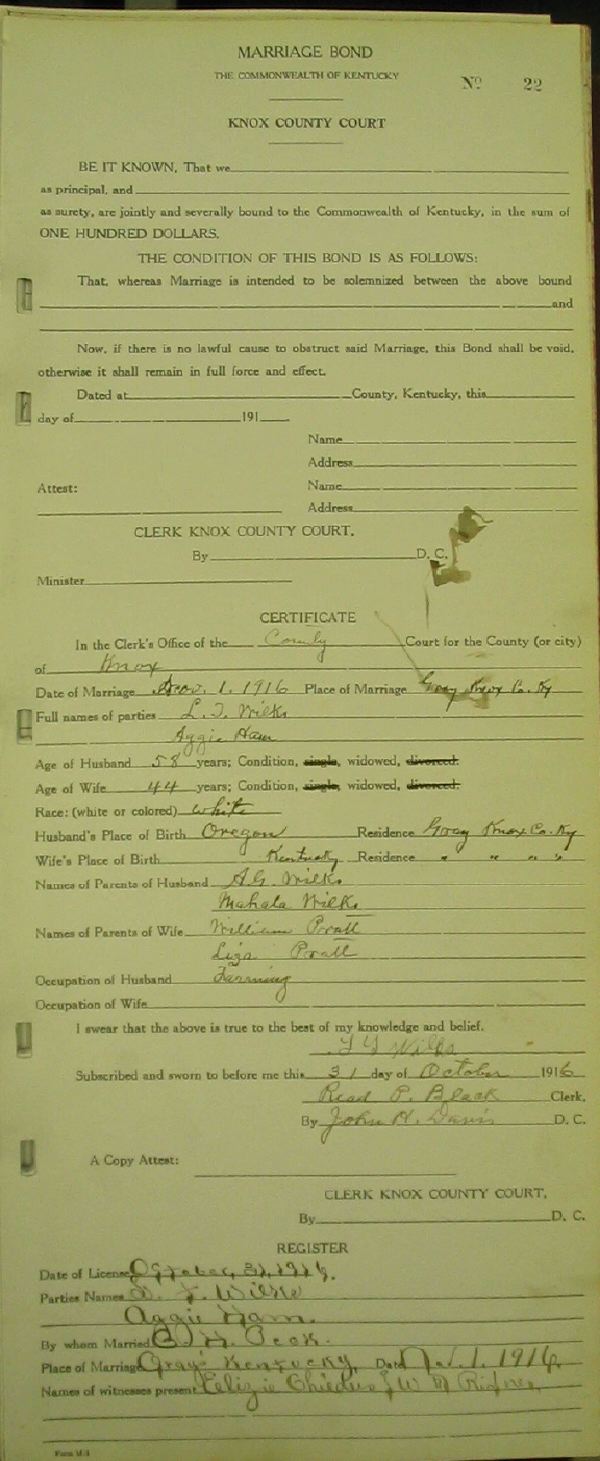 MARRIAGE BOND
THE COMMONWEALTH OF KENTUCKY
No 22
KNOX COUNTY COURT
BE IT KNOWN, That we
as principal, and
as surety, are jointly and severally bound to the Commonwealth of Kentucky, in the sum of
ONE HUNDRED DOLLARS.
THE CONDITION OF THIS BOND IS AS FOLLOWS:
That, whereas Marriage is intended to be solemnized between the above bound
and
Now, if there is no lawful cause to obstruct said Marriage, this Bond shall be void,
otherwise it shall remain in full force and effect.
Dated at County, Kentucky, this
day of 191
Name
Address
Attest: Name
Address
CLERK KNOX COUNTY COURT.
By D. C.
Minister
CERTIFICATE
In the Clerk's Office of the County Court for the County (or city)
of Knox
Date of Marriage Nov. 1. 1916 Place of Marriage Gray Knox Co. Ky
Full names of parties L. T. Wilks
Aggie Ham
Age of Husband 58 years; Condition, single, widowed, divorced.
Age of Wife 44 years; Condition, single, widowed, divorced.
Race: (white or colored) white
Husband's Place of Birth Oregon Residence Gray Knox Co. Ky
Wife's Place of Birth Kentucky Residence " " " "
Names of Parents of Husband A.G. Wilks
Mahala Wilks
Names of Parents of Wife William Pratt
Liza Pratt
Occupation of Husband Farming
Occupation of Wife
I swear that the above is true to the best of my knowledge and belief.
Wilks
Subscribed and sworn to before me this 31 day of October 1916
Read P. Black Clerk.
By John H. Davis D. C.
A Copy Attest:
CLERK KNOX COUNTY COURT.
By D. C.
REGISTER
Date of License October, 31, 1916.
Parties Names Wilks
Aggie Ham.
By whom Married H. Peck.
Place of Marriage Gray Kentucky, Date Nov. 1. 1916
Names of witnesses present
Form M-3